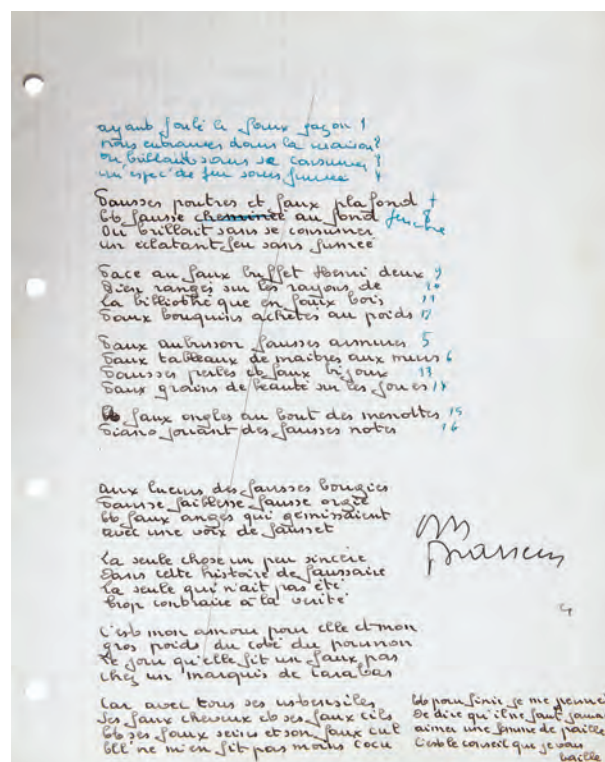 ayant foulé le faux gazon 1
nous entrames dans la maison 2
Ou brillait sans se consumer 3
un' espec' de feu sans fumée 4
Fausses poutres et faux plafond 7
Et fausse cheminée au fond fenêtre 8
Ou brillait sans se consumer
un eclatant feu sans fumée
Face au faux buffet Henri deux 9
Bien rangés sur les rayons de 10
La bibliothèque en faux bois 11
Faux bouquins achetés au poids 12
Faux aubusson fausses armures 5
Faux tableaux de maitres aux murs 6
Fausses perles et faux bijoux 13
Faux grains de beauté sur les joues 14
Et faux ongles au bout des menottes 15
Piano jouant des fausses notes 16
aux lueurs des fausses bougies
Fausse faiblesse fausse orgie
Et faux anges qui gemissaient
avec une voix de fausset
La seule chose un peu sincère
Dans cette histoire de faussaire
La seule qui n'ait pas été
trop contraire à la verité
C'est mon amour pour elle et mon
gros poids du coté du poumon
Le jour qu'elle fit un faux pas
chez un marquis de Carabas
Car avec tous ses ustensiles
Ses faux cheveux et ses faux cils
Et ses faux seins et son faux cul
Ell' ne m'en fit pas moins cocu
Et pour finir je me permei
De dire qu'il ne faut jamai
aimer une femme de paille
C'est le conseil que je vou
baille
Brassens
4